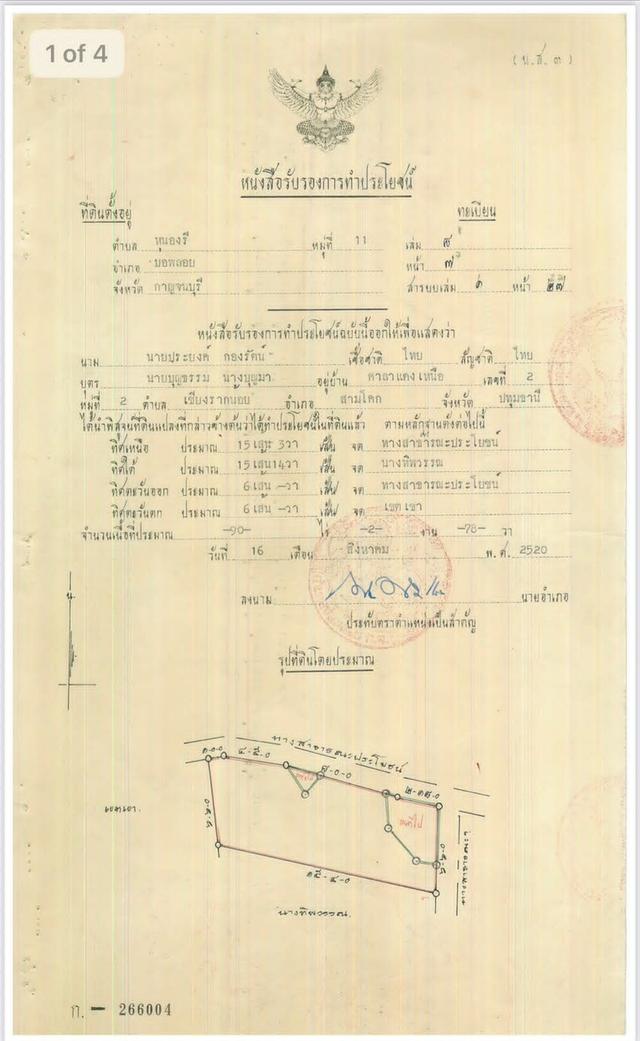 1 of 4
(น.ส. ๓)
หนังสือรับรองการทำประโยชน์
ที่ดินตั้งอยู่ ทะเบียน
ตำบล หนองรี หมู่ที่ 11 เล่ม
อำเภอ บอพลอย หน้า
จังหวัด กาญจนบุรี สารบบเล่ม หน้า
หนังสือรับรองการทำประโยชน์ฉบับนี้ออกให้เพื่อแสดงว่า
นาม นายประยงค์ กองรัตน์ เชื้อชาติ ไทย สัญชาติ ไทย
บุตร นายบุญธรรม นางบุญมา อยู่บ้าน ศาลาแดงเหนือ เลขที่ 2
หมู่ที่ 2 ตำบล เชียงรากน้อย อำเภอ สามโคก จังหวัด ปทุมธานี
ได้นำพิสูจน์ที่ดินแปลงที่กล่าวข้างต้นว่าได้ทำประโยชน์ในที่ดินแล้ว ตามหลักฐานดังต่อไปนี้
ทิศเหนือ ประมาณ 15 เส้น 3 วา เส้น จด ทางสาธารณะประโยชน์
ทิศใต้ ประมาณ 15 เส้น 14 วา เส้น จด นางทิพวรรณ
ทิศตะวันออก ประมาณ 6 เส้น - วา เส้น จด ทางสาธารณะประโยชน์
ทิศตะวันตก ประมาณ 6 เส้น - วา เส้น จด เขตเขา
จำนวนเนื้อที่ประมาณ -90- ไร่ -2- งาน -78- วา
วันที่ 16 เดือน สิงหาคม พ.ศ. 2520
ลงนาม นายอำเภอ
ประทับตราตำแหน่งเป็นสำคัญ
รูปที่ดินโดยประมาณ
ทางสาธารณะประโยชน์
๔-๕-๐
๘-๐-๐
๑๕-๔-๐
นางทิพวรรณ
ก. - 266004